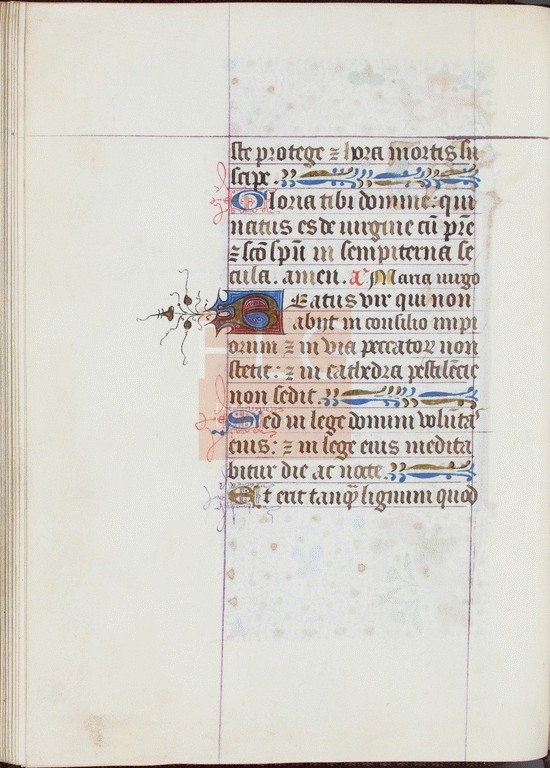 ste protege ⁊ hora mortis su
scipe.
Gloria tibi domine: qui
natus es de uirgine cū p̄re
⁊ sc̄o sp̄u in sempiterna se
cula. amen. a᷍ Maria uirgo
Beatus vir qui non
abijt in consilio impi
orum ⁊ in via peccatoꝝ non
stetit: ⁊ in cathedra pestilēcie
non sedit.
Sed in lege domini volūta᷒
eius: ⁊ in lege eius medita
bitur die ac nocte.
Et erit tanqͣ lignum quod